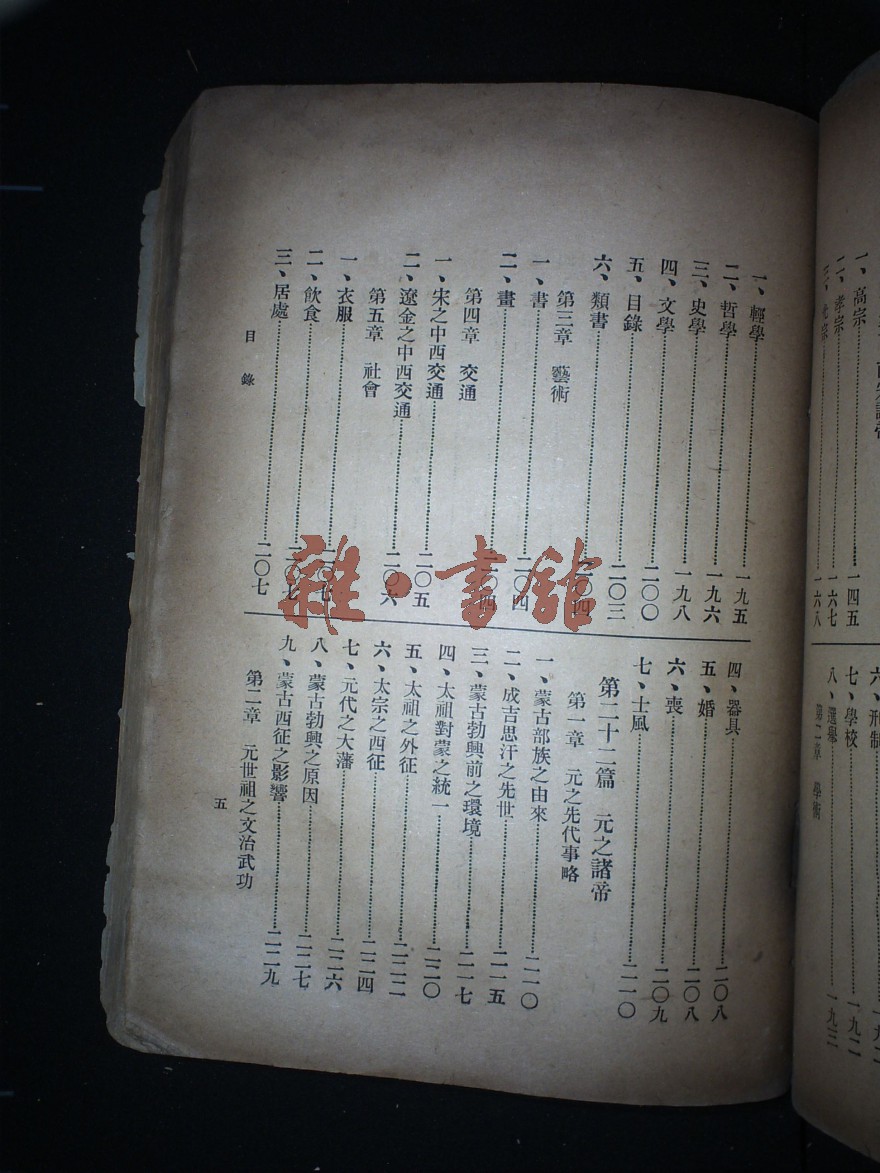 一、高宗……一四五
二、孝宗……一六七
三、光宗……一六八
六、刑制
七、學校……一九二
八、選舉……一九三
第二章　學術
一、輕學……一九五
二、哲學……一九六
三、史學……一九八
四、文學……二〇〇
五、目錄……二〇三
六、類書……二〇四
第三章　藝術
一、書……二〇四
二、畫……二〇四
第四章　交通
一、宋之中西交通……二〇五
二、遼金之中西交通……二〇六
第五章　社會
一、衣服……二〇七
二、飲食……二〇七
三、居處……二〇七
目錄
四、器具……二〇八
五、婚……二〇八
六、喪……二〇九
七、士風……二一〇
第二十二篇　元之諸帝
第一章　元之先代事略
一、蒙古部族之由來……二一〇
二、成吉思汗之先世……二一五
三、蒙古勃興前之環境……二一七
四、太祖對蒙之統一……二二〇
五、太祖之外征……二二二
六、太宗之西征……二二四
七、元代之大藩……二二六
八、蒙古勃興之原因……二二七
九、蒙古西征之影響……二二九
第二章　元世祖之文治武功
五
雜·書館